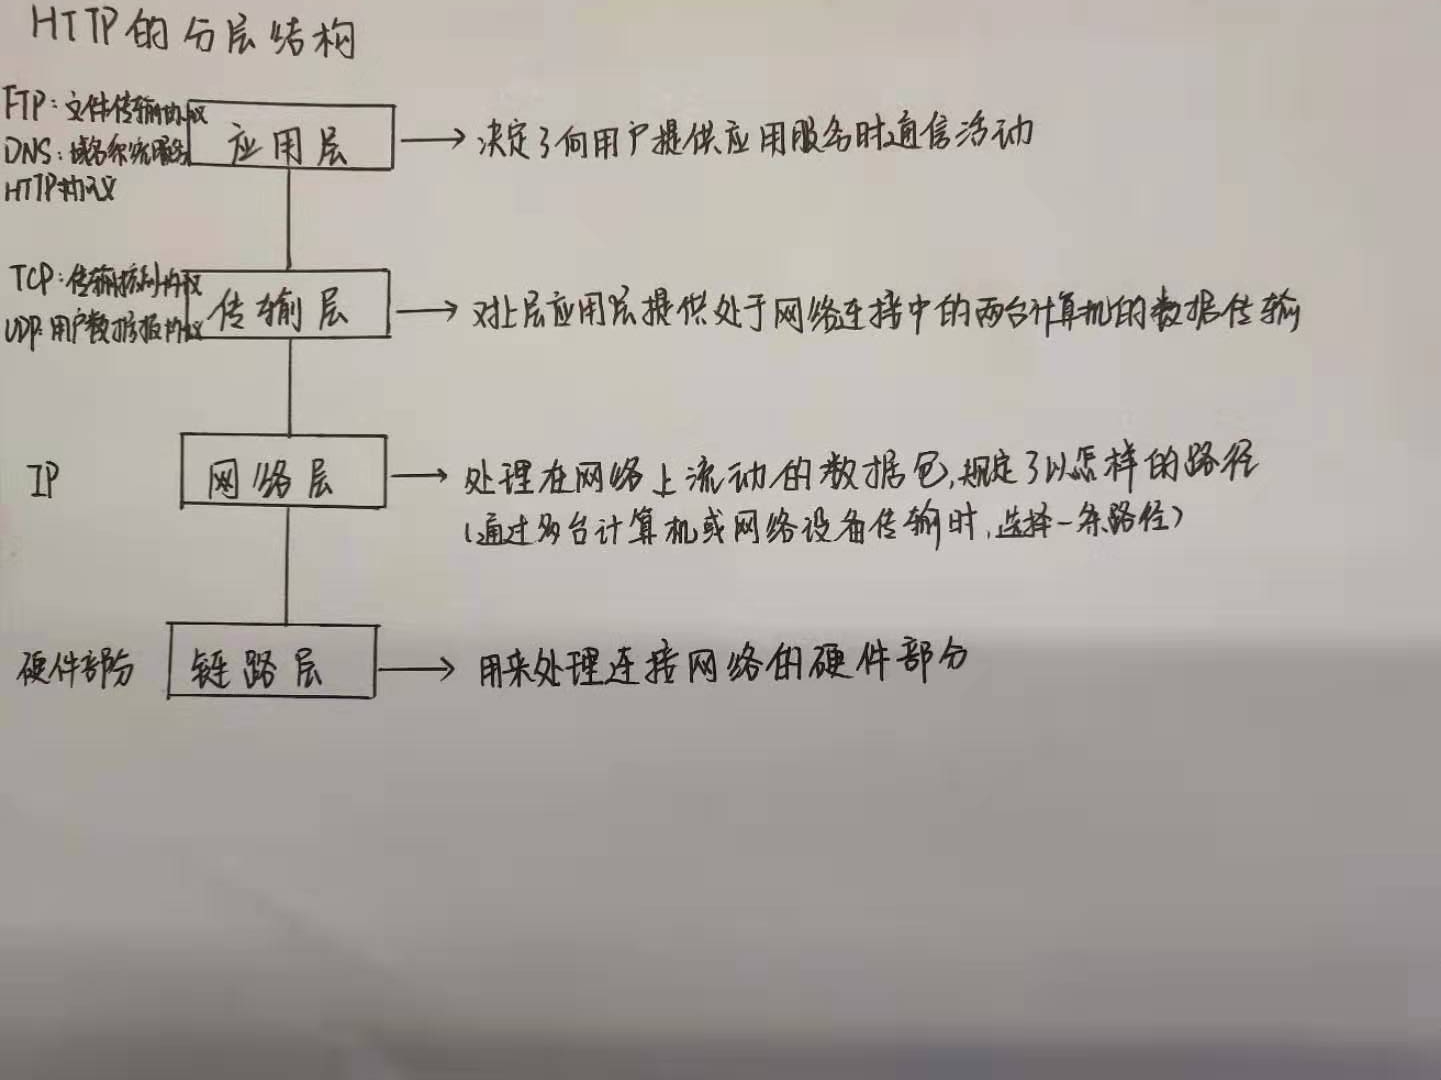 HTTP的分层结构
FTP：文件传输协议
DNS：域名系统服务
HTTP协议
应用层
决定了向用户提供应用服务时通信活动
TCP：传输控制协议
UDP 用户数据报协议
传输层
对上层应用层提供处于网络连接中的两台计算机的数据传输
IP
网络层
处理在网络上流动的数据包,规定了以怎样的路径
(通过多台计算机或网络设备传输时,选择一条路径)
硬件部分
链路层
用来处理连接网络的硬件部分